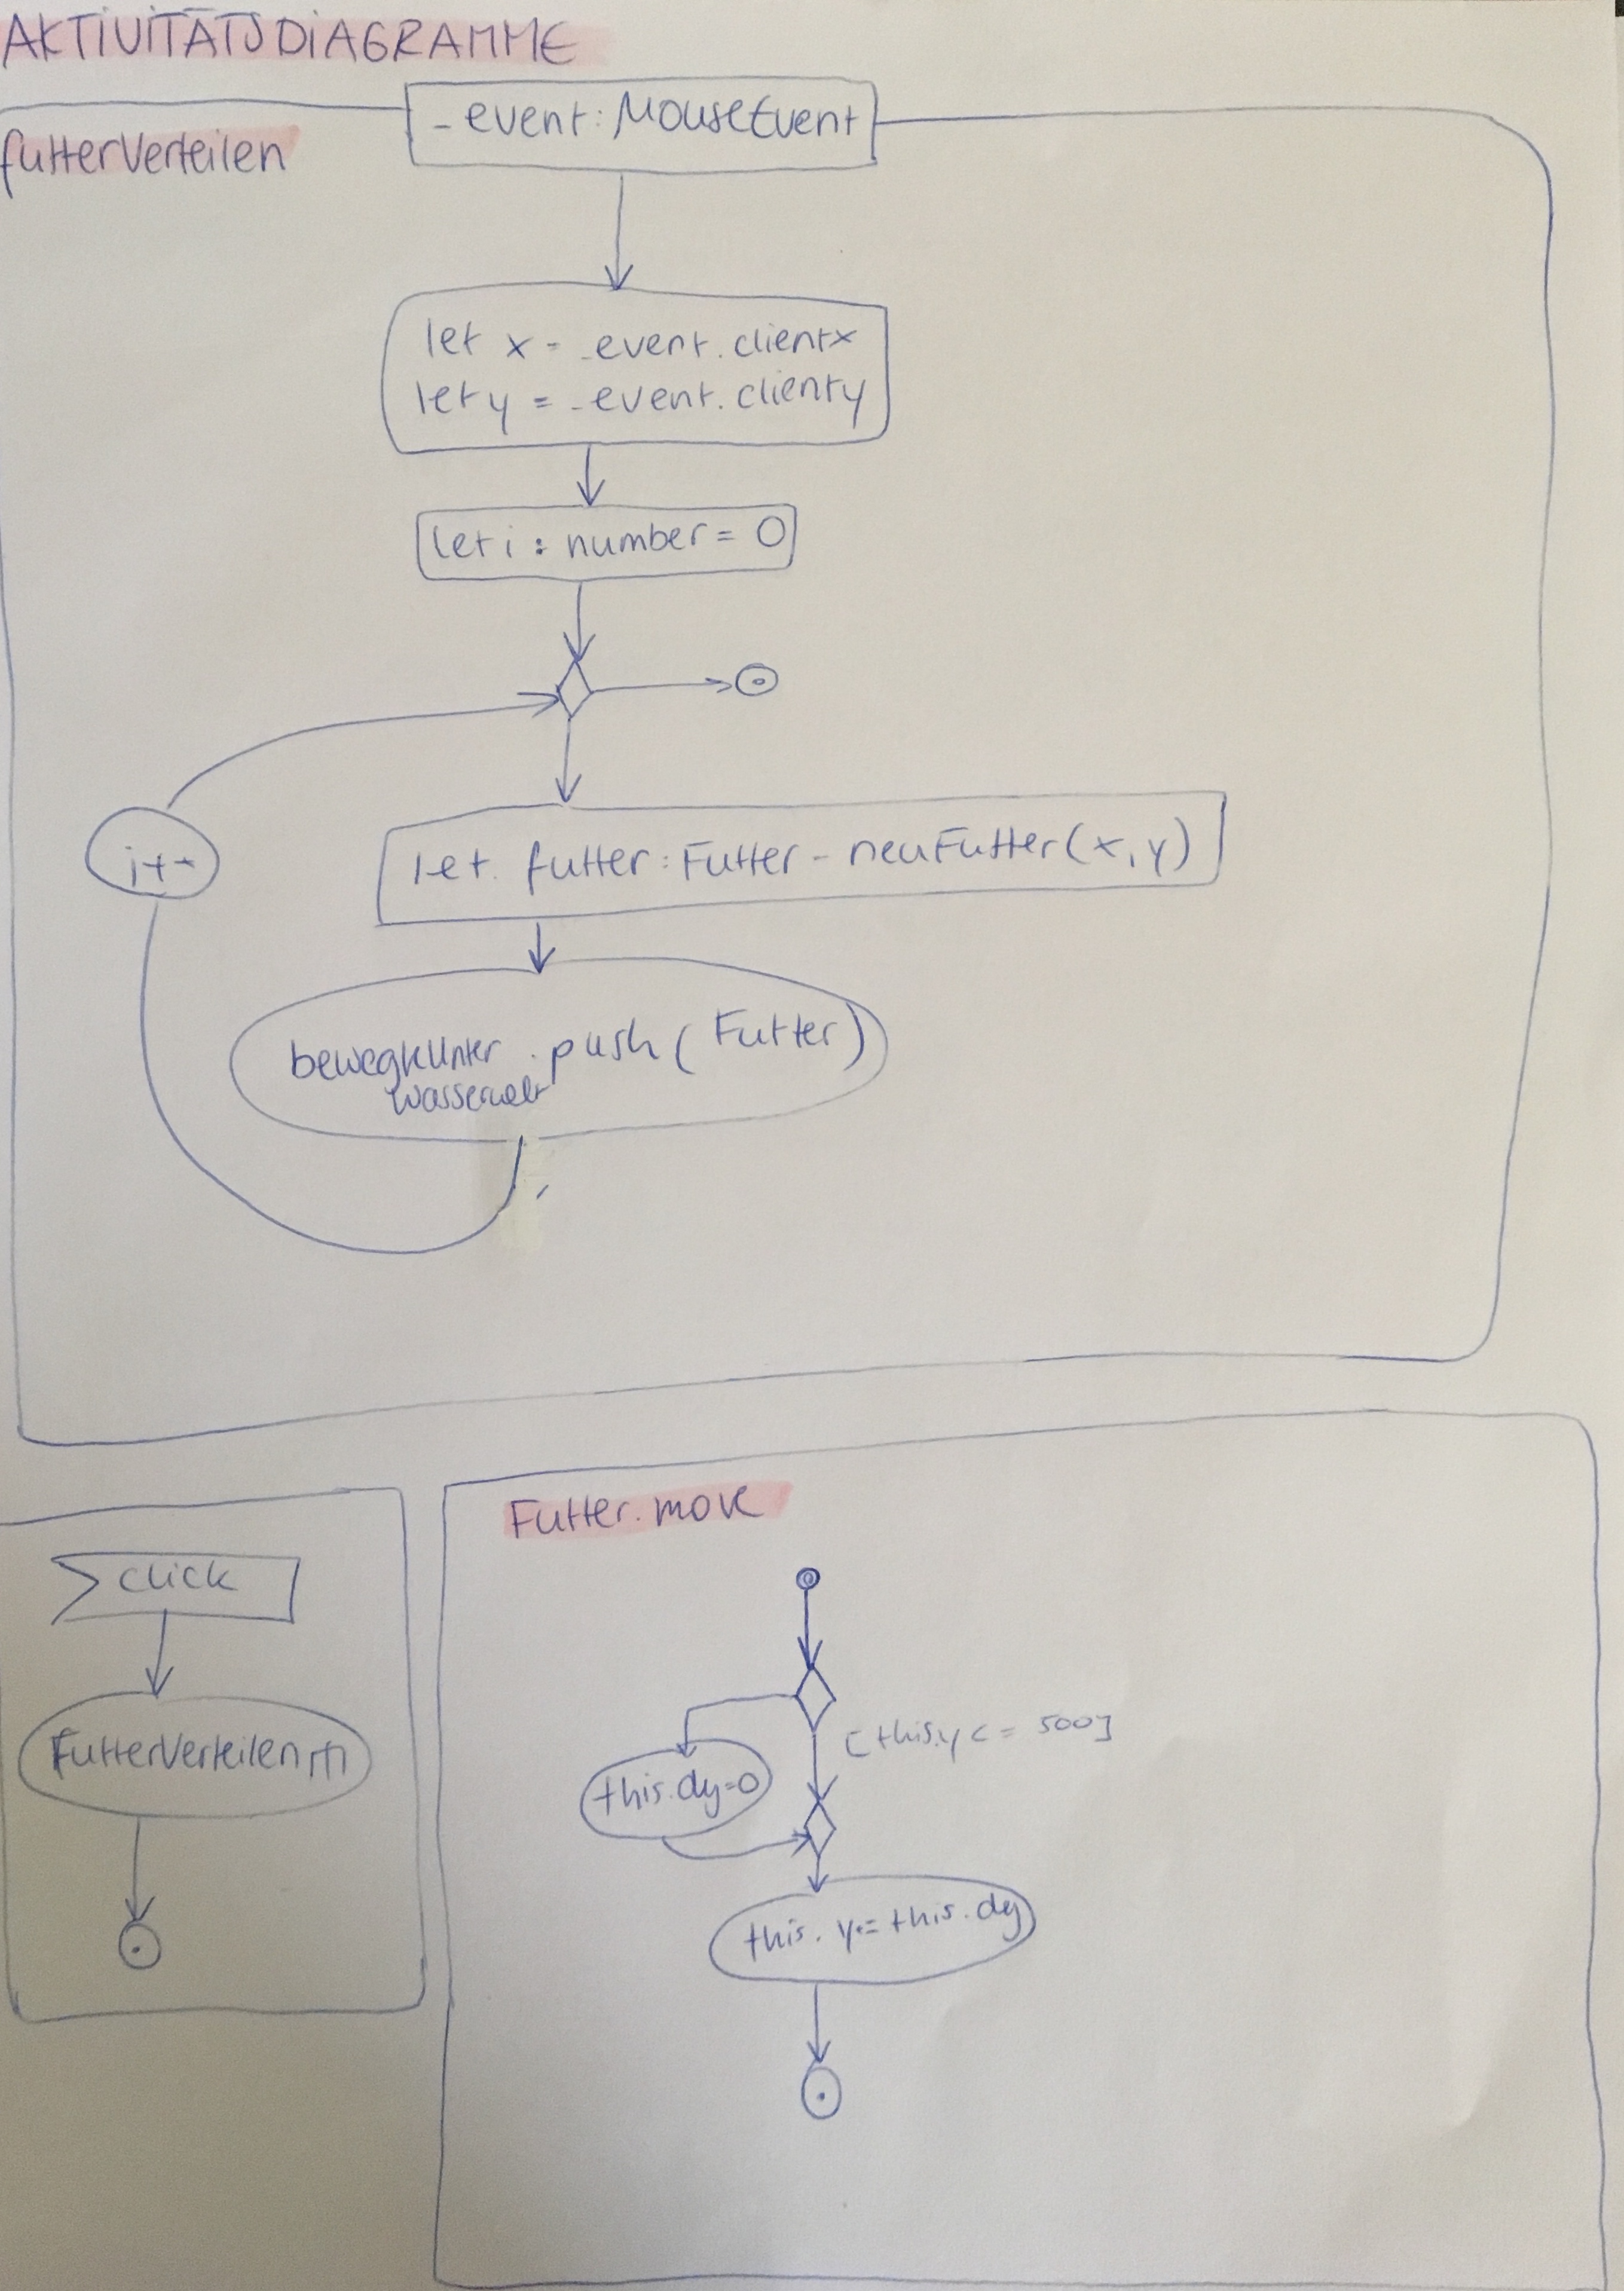 AKTIVITÄTSDIAGRAMME
_event: MouseEvent
futterVerteilen
let x = _event.clientx
let y = _event.clienty
let i : number = 0
i++
let futter: Futter - neuFutter(x,y)
bewegteUnter .push(Futter)
wasserwelt
click
FutterVerteilen
Futter.move
[this.y <= 500]
this.dy=0
this. y+= this.dy